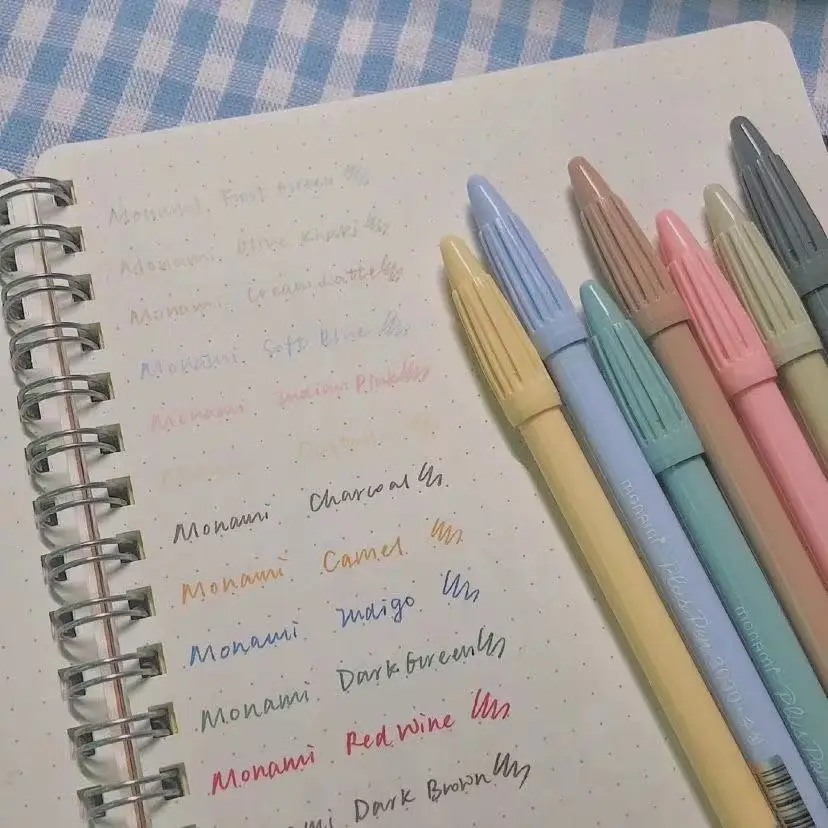 Monami Frost Green
Monami Olive Khaki
Monami Cream Latte
Monami Soft Blue
Monami Indian Pink
Custard
Monami Charcoal
Monami Camel
Monami Indigo
Monami Dark Green
Monami Red Wine
Dark Brown
monami Plus Pen 3000
monami Plus Pen